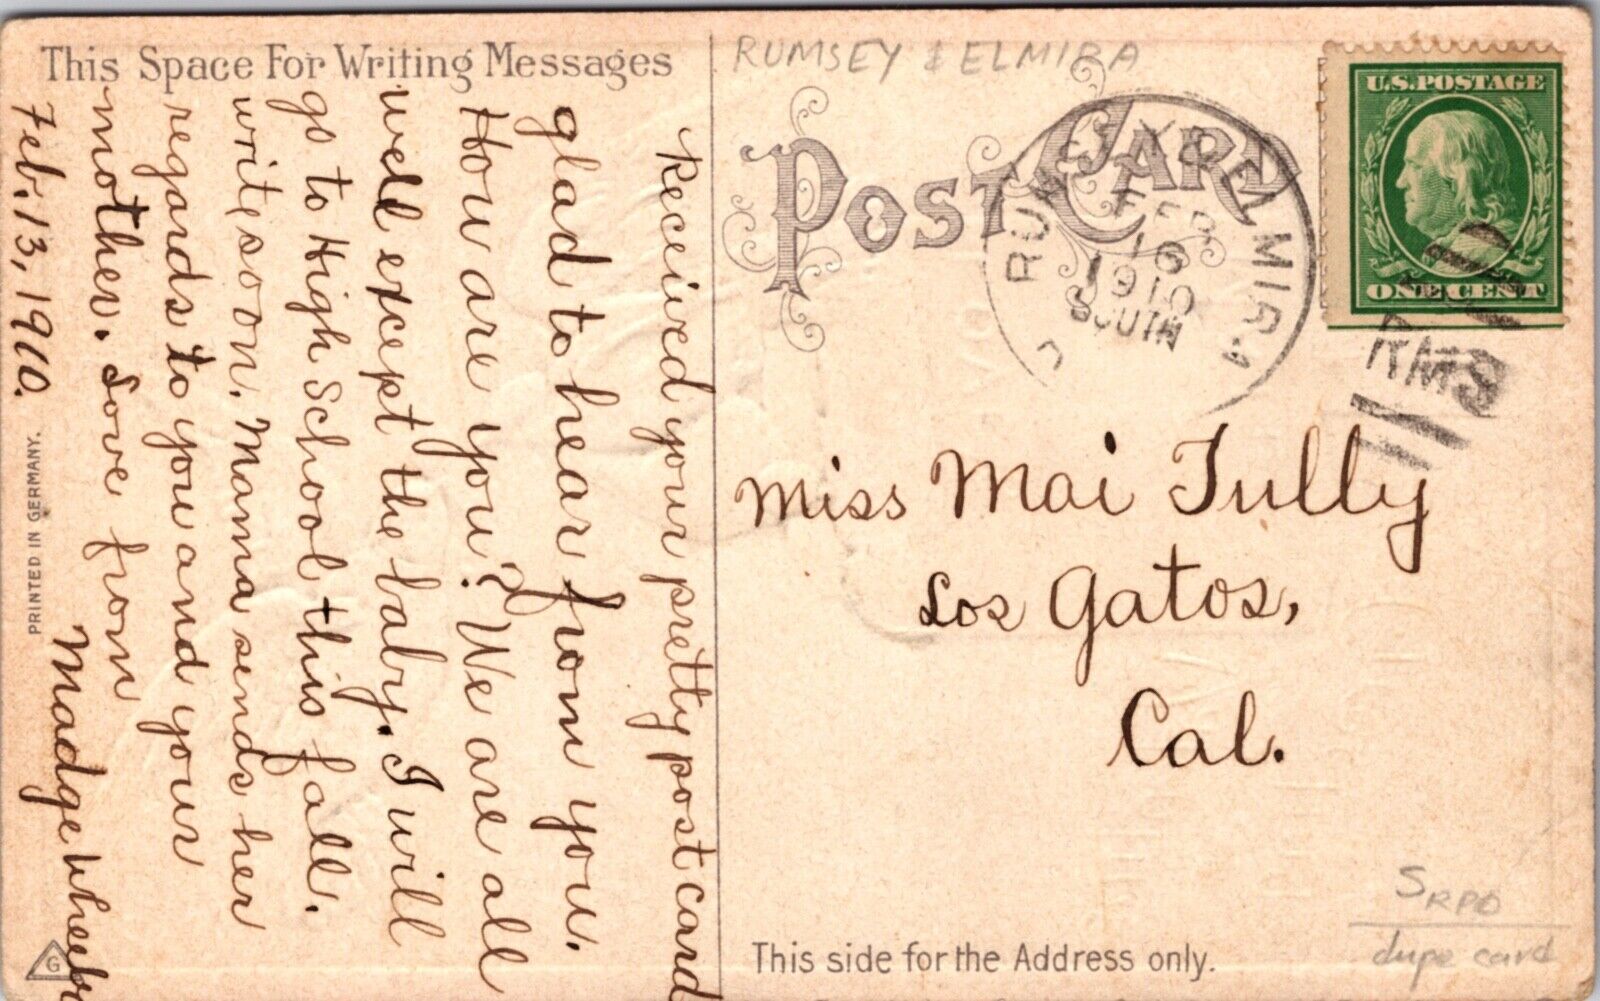 This Space For Writing Messages
Received your pretty post card
glad to hear from you.
How are you? We are all
well except the baby. I will
go to High School this fall.
write soon. Mama sends her
regards to you and your
mother. Love from
Madge
Feb. 13, 1910.
PRINTED IN GERMANY.
G
RUMSEY & ELMIRA
POST CARD
ELMIRA
FEB
16
1910
SOUTH
RMS
U.S. POSTAGE
ONE CENT
Miss Mai Tully
Los Gatos,
Cal.
This side for the Address only.
SRPO
dupe card